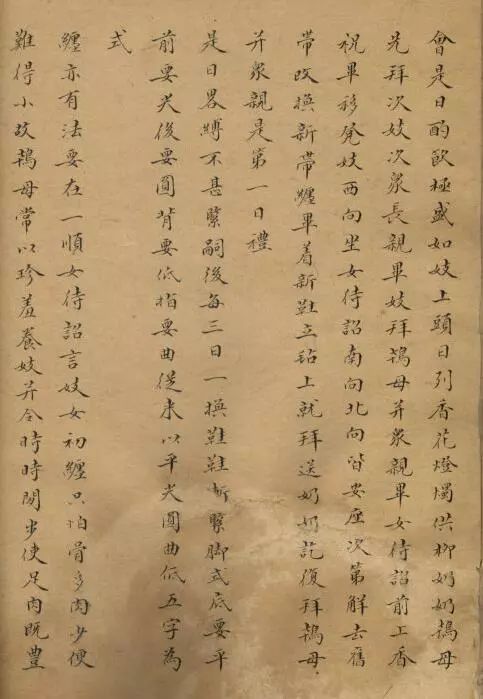 會是日酌飲極盛如妓上頭日列香花燈燭供柳奶奶鴇母
先拜次妓次衆長親畢妓拜鴇母并衆親畢女侍詔前上香
祝畢移凳妓西向坐女侍詔南向北向皆安座次第解去舊
帶改換新帶纏畢着新鞋立毡上就拜送奶奶訖復拜鴇母
并衆親是第一日禮
是日畧縛不甚緊嗣後每三日一換鞋鞋斬緊脚式底要平
前要尖後要圓背要低指要曲從來以平尖圓曲低五字為
式
纏亦有法要在一順女侍詔言妓女初纏只怕骨多肉少便
難得小故鴇母常以珍羞養妓并令時時閒步使足肉既豊